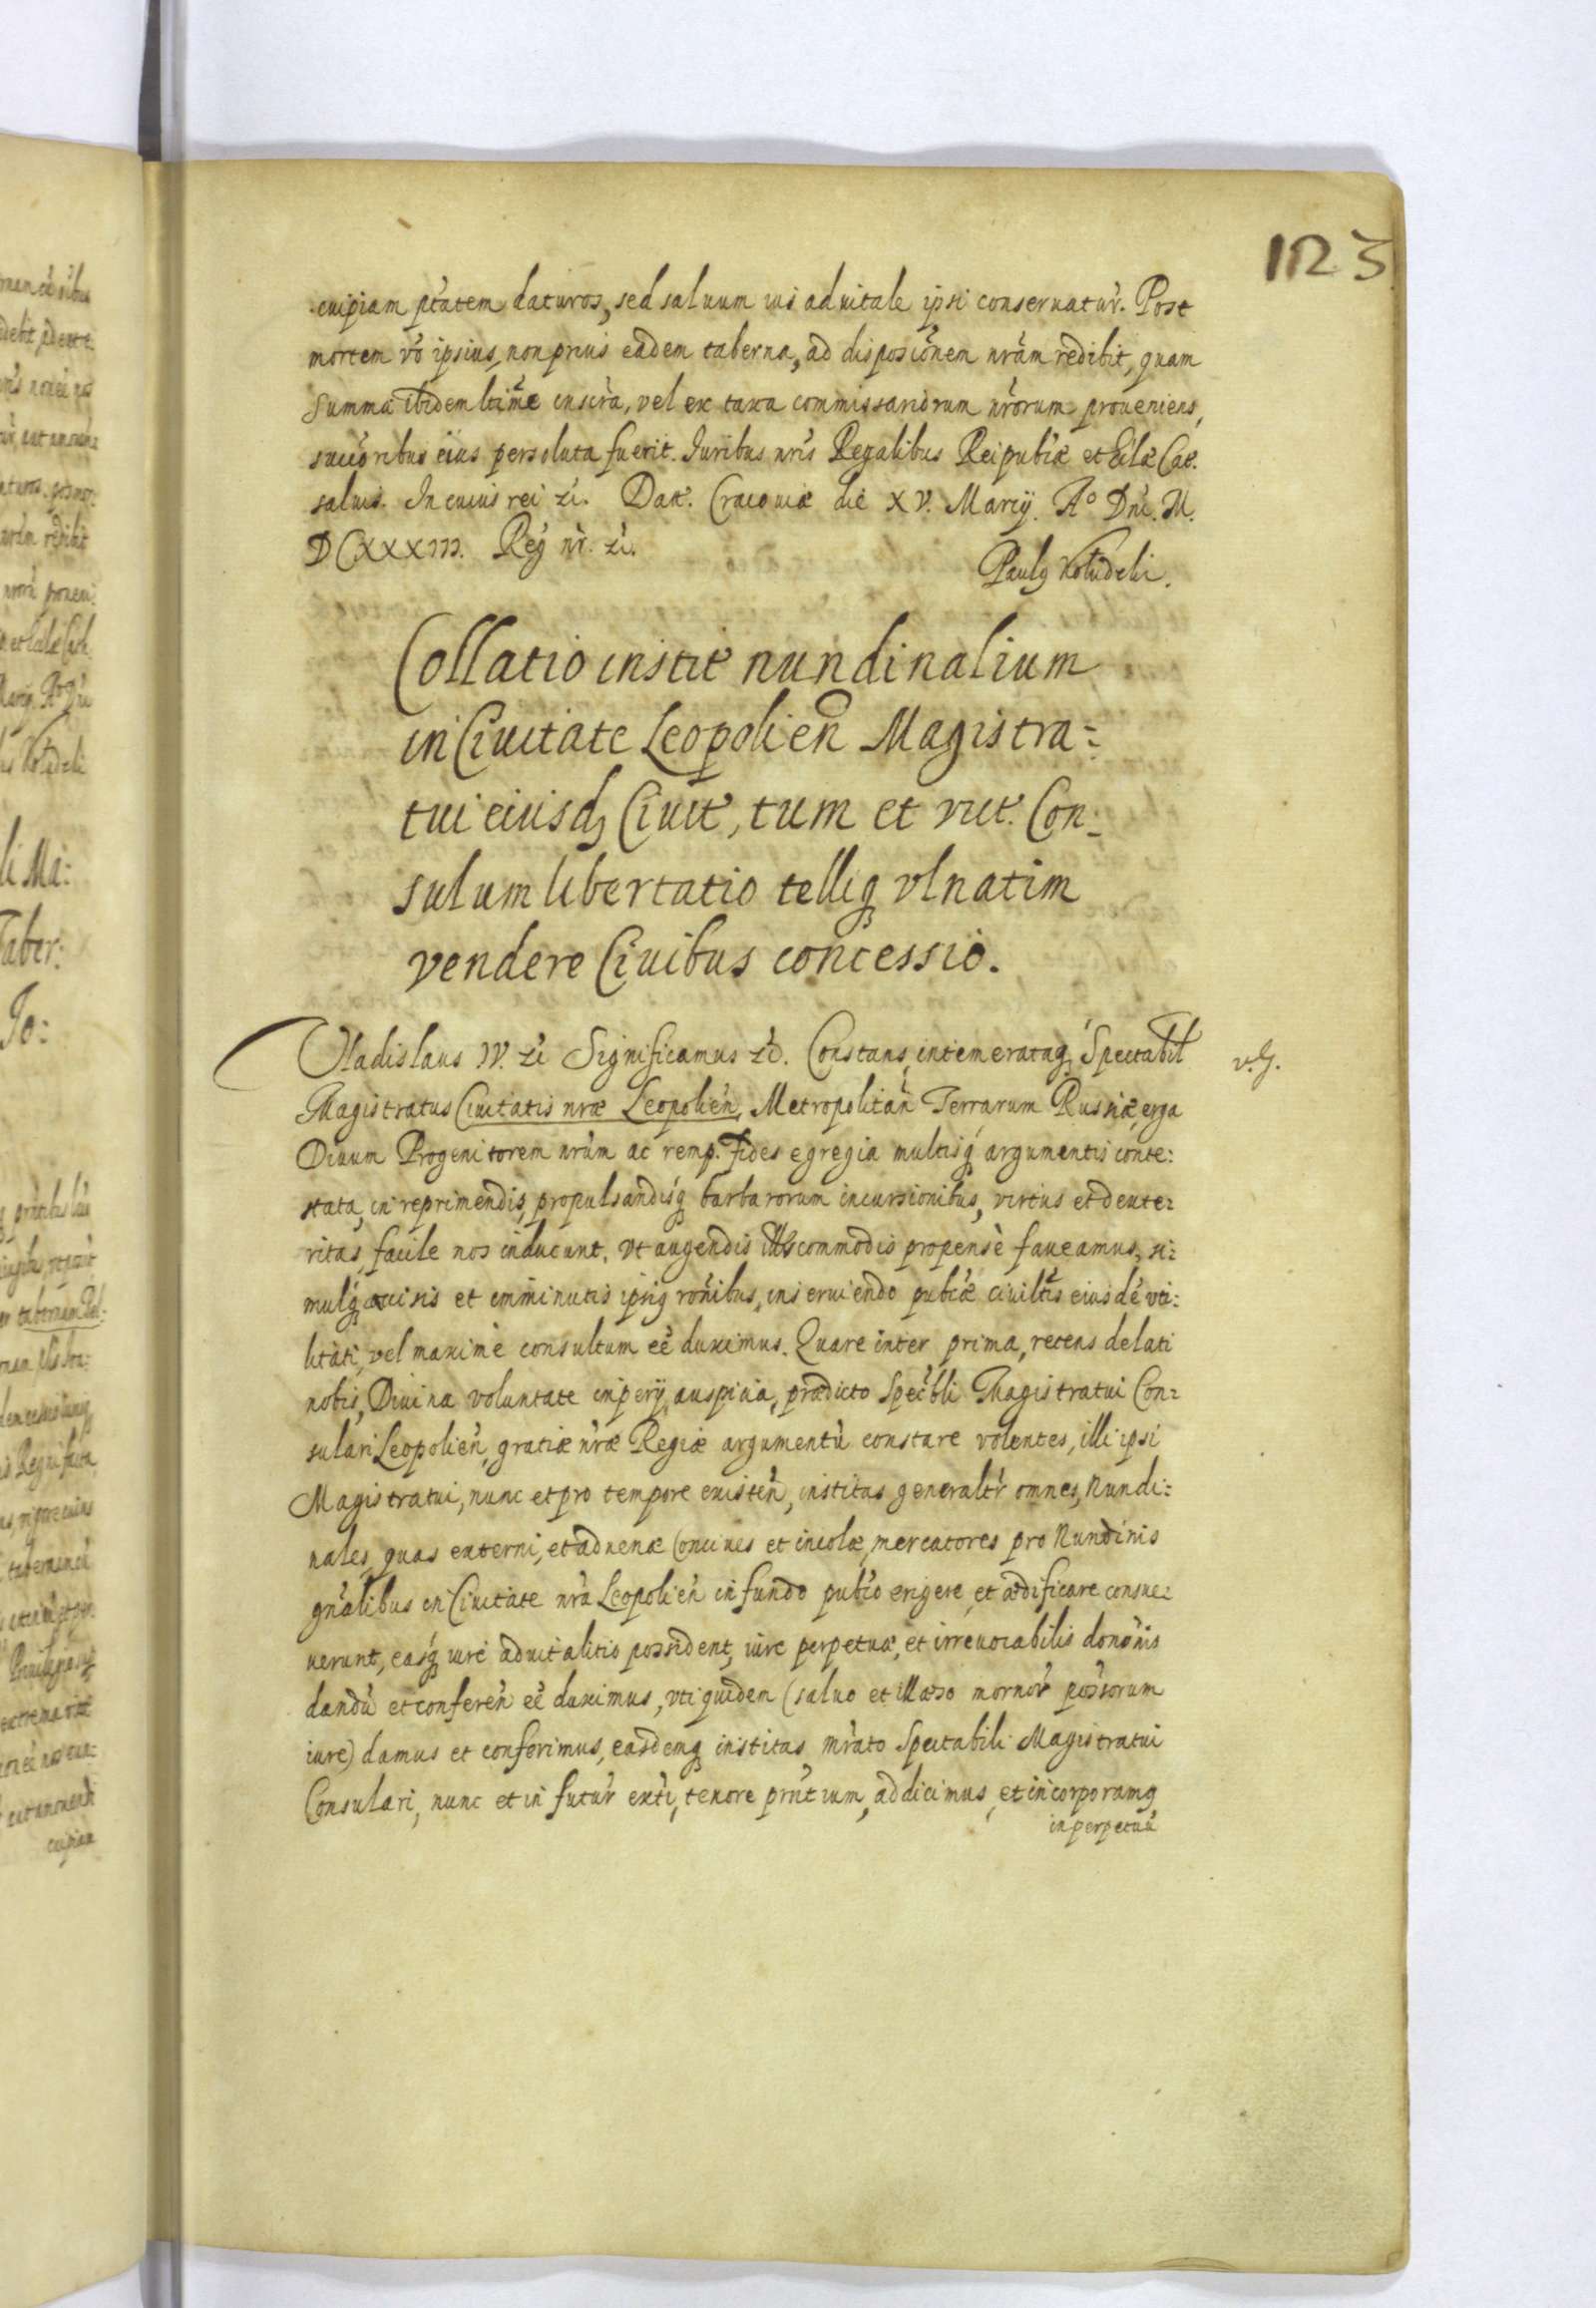 1123
cuipiam ptatem daturos, sed saluum ius aduitale ipsi conseruatur. Post
mortem vo ipsius, non prius eadem taberna, ad disposicionem nram redibit, quam
Summa ibidem ltime inscra, vel ex taxa commissariorum nrorum proueniens,
succoribus eius persoluta fuerit. Iuribus nris Regalibus Reipublcæ et Eclæ Cat.
saluis. In cuius rei &. Dat. Cracouiæ die XV. Marcij. Ao Dni. M.
DCXXXIII. Reg nr. &.
Paulg Koludzki.
Collatio instit nundinalium
in Ciuitate Leopolien Magistra=
tui eiusd Ciuit, tum et vict. Con=
sulum libertatio tellig vlnatim
vendere Ciuibus concessio.
Vladislaus IV. & Significamus &. Constans, intemerataq Spectabil
v. g.
Magistratus Ciuitatis nræ Leopolien, Metropolitan Terrarum Russiæ, erga
Diuum Progenitorem nrum ac remp. fides egregia multisq argumentis conte=
stata, in reprimendis, propulsandisq barbarorum incursionibus, virtus et dexte=
ritas, facile nos inducunt, vt augendis commodis propensè faueamus, si=
mulq accisis et imminutis ipsig ronibus, inseruiendo publcæ ciuiltis eiusde vti=
litati, vel maximè consultum eē duximus. Quare inter prima, recens delati
nobis, Diuina voluntate imperij auspicia, prædicto Spectbli Magistratui Con=
sulari Leopolien, gratiæ nræ Regiæ argumentu constare volentes, illi ipsi
Magistratui, nunc et pro tempore existen, institas generaltr omnes, Nundi=
nales, quas externi, et aduenæ Conciues et incolæ, mercatores pro Nundinis
gnalibus in Ciuitate nra Leopolien in fundo publco erigere, et ædificare consue=
uerunt, easq iure aduitalitio possident, iure perpetuæ, et irreuocabilis dononis
dandu et conferen eē duximus, vti quidem (saluo et illæso mornor possorum
iure) damus et conferimus, easdemq institas, mrato Spectabili Magistratui
Consulari, nunc et in futur exti, tenore prntium, addicimus, et incorporamg
in perpetuu